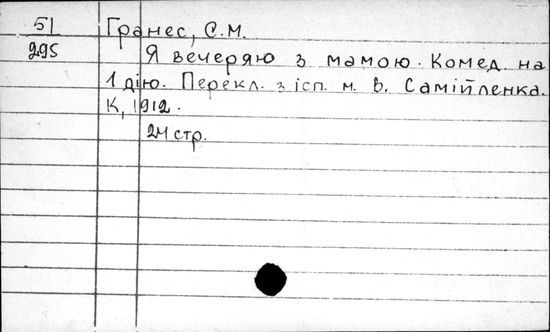 51
295
Гранес, С.М.
Я вечеряю з мамою. Комед. на
1 дію. Перекл. з ісп. м. В. Самійленка.
К, 1912.
24 стр.